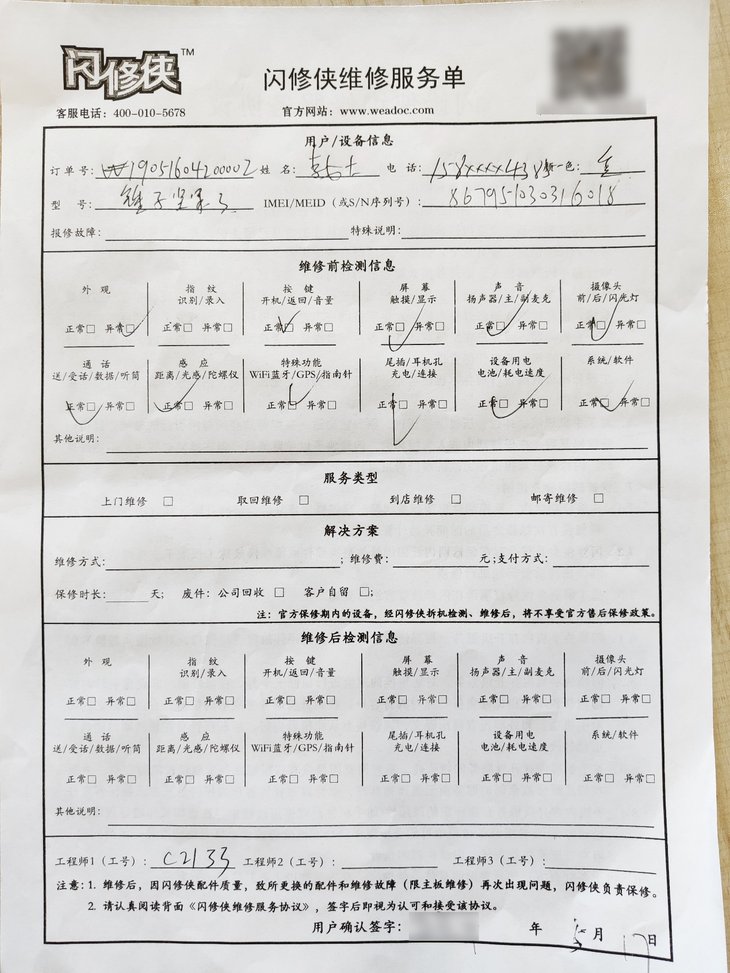 闪修侠™
闪修侠维修服务单
客服电话：400-010-5678 官方网站：www.weadoc.com
用户/设备信息
订单号：W19051604200002 姓名： 电话：158xxxx438 颜色：金
型号：锤子坚果3 IMEI/MEID（或S/N序列号）：867951030316018
报修故障： 特殊说明：
维修前检测信息
外观 指纹 按键 屏幕 声音 摄像头
识别/录入 开机/返回/音量 触摸/显示 扬声器/主/副麦克 前/后/闪光灯
正常□ 异常□ 正常□ 异常□ 正常□ 异常□ 正常□ 异常□ 正常□ 异常□ 正常□ 异常□
通话 感应 特殊功能 尾插/耳机孔 设备用电 系统/软件
送/受话/数据/听筒 距离/光感/陀螺仪 WiFi蓝牙/GPS/指南针 充电/连接 电池/耗电速度
正常□ 异常□ 正常□ 异常□ 正常□ 异常□ 正常□ 异常□ 正常□ 异常□ 正常□ 异常□
其他说明：
服务类型
上门维修 □ 取回维修 □ 到店维修 □ 邮寄维修 □
解决方案
维修方式：；维修费：元；支付方式：
保修时长：天； 废件：公司回收 □ 客户自留 □；
注：官方保修期内的设备，经闪修侠拆机检测、维修后，将不享受官方售后保修政策。
维修后检测信息
外观 指纹 按键 屏幕 声音 摄像头
识别/录入 开机/返回/音量 触摸/显示 扬声器/主/副麦克 前/后/闪光灯
正常□ 异常□ 正常□ 异常□ 正常□ 异常□ 正常□ 异常□ 正常□ 异常□ 正常□ 异常□
通话 感应 特殊功能 尾插/耳机孔 设备用电 系统/软件
送/受话/数据/听筒 距离/光感/陀螺仪 WiFi蓝牙/GPS/指南针 充电/连接 电池/耗电速度
正常□ 异常□ 正常□ 异常□ 正常□ 异常□ 正常□ 异常□ 正常□ 异常□ 正常□ 异常□
其他说明：
工程师1（工号）：C2133 工程师2（工号）： 工程师3（工号）：
注意：1. 维修后，因闪修侠配件质量，致所更换的配件和维修故障（限主板维修）再次出现问题，闪修侠负责保修。
2. 请认真阅读背面《闪修侠维修服务协议》，签字后即视为认可和接受该协议。
用户确认签字： 年 5月 17日